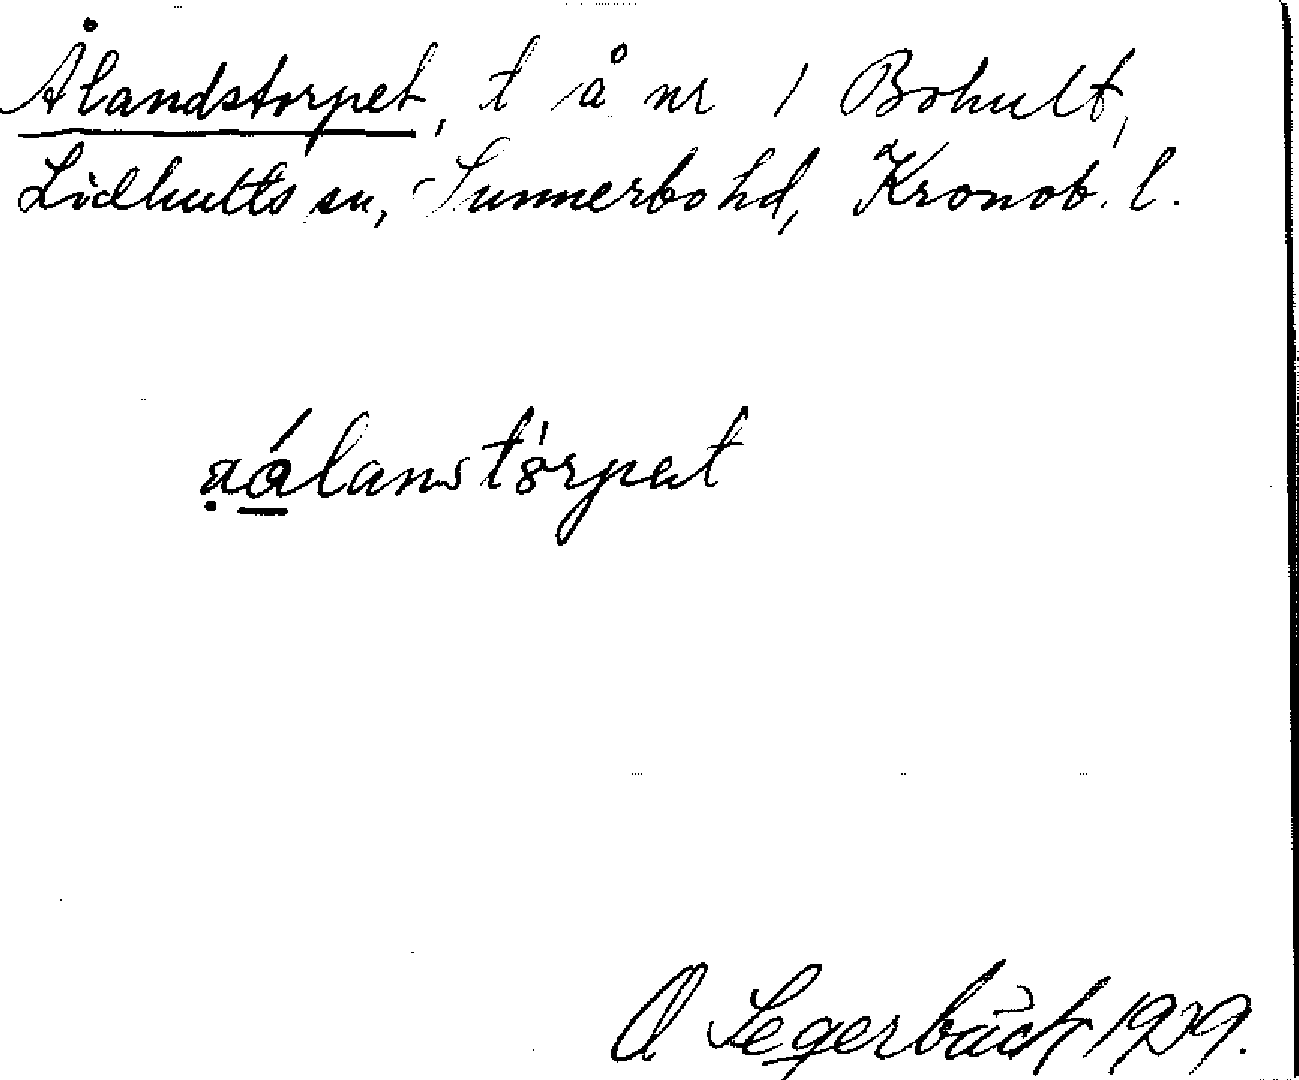 Ålandstorpet, t å nr 1 Bohult,
Lidhults sn, Sunnerbo hd, Kronob. l.
ạá̱lanstʹɷrpet
O Segerbäck 1929.